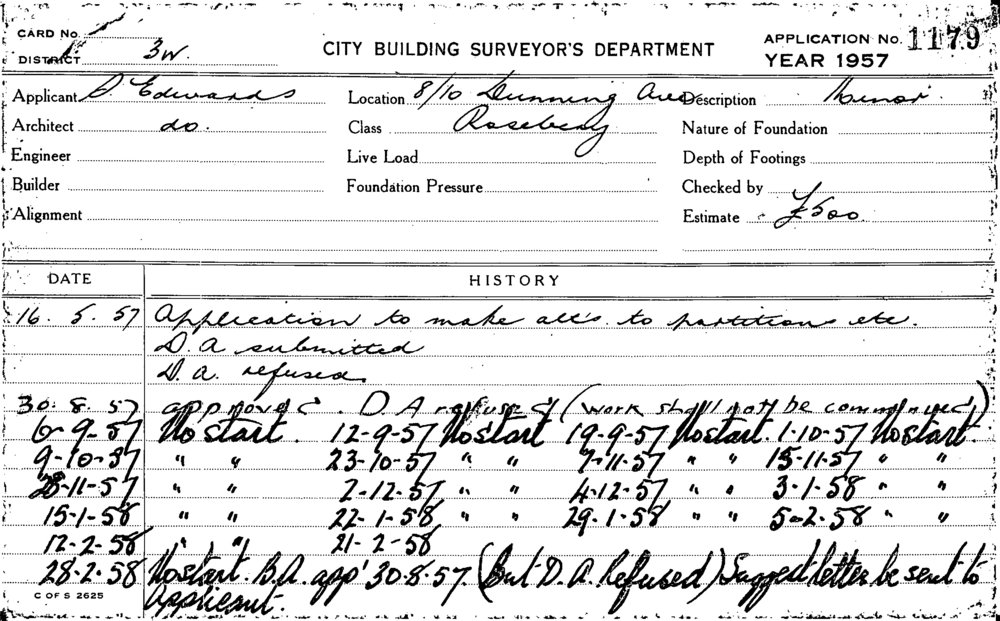 CARD No.
DISTRICT 3W.
CITY BUILDING SURVEYOR'S DEPARTMENT
APPLICATION No. 1179
YEAR 1957
Applicant D Edwards Location 8/10 Dunning Ave Description Minor
Architect do. Class Rosebery Nature of Foundation
Engineer Live Load Depth of Footings
Builder Foundation Pressure Checked by
Alignment Estimate £500
DATE HISTORY
16. 5. 57 Application to make alts. to partitions etc.
D. A submitted
D. A. refused
30. 8. 57 approved. D A refused (work shall not be commenced)
6-9-57 No start. 12-9-57 No start 19-9-57 No start. 1-10-57 No start.
9-10-57 " " 23-10-57 " " 7-11-57 " " 15-11-57 " "
28-11-57 " " 2-12-57 " " 4-12-57 " " 3-1-58 " "
15-1-58 " " 22-1-58 " " 29-1-58 " " 5-2-58 " "
12-2-58 " " 21-2-58
28-2-58 No start. B.A. app' 30-8-57. (But D. A. Refused) Suggest letter be sent to
Applicant.
C OF S 2625